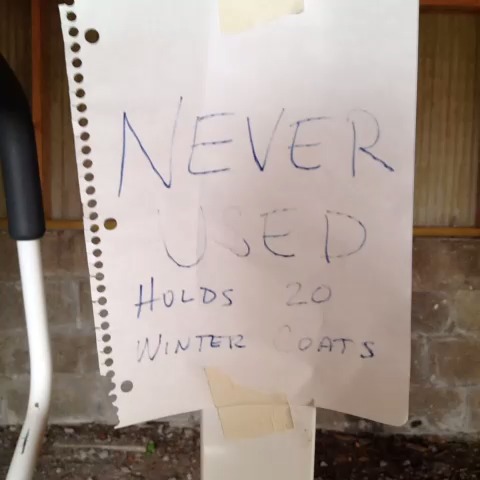 NEVER
USED
HOLDS 20
WINTER COATS